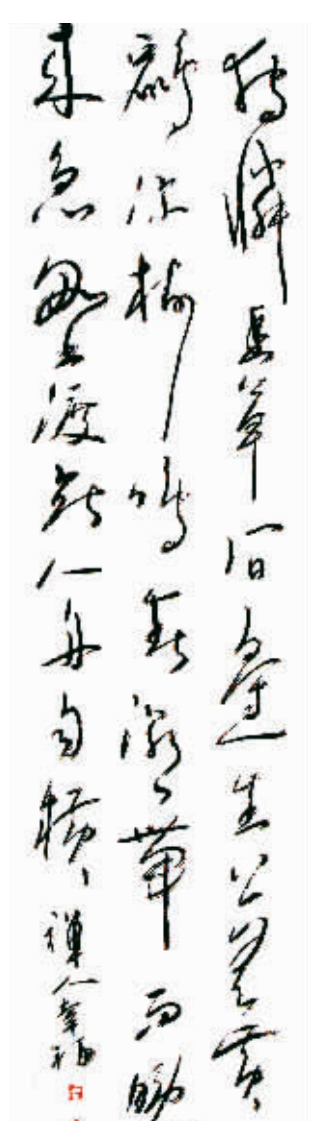 獨憐幽草澗邊生上有黃
鸝深樹鳴春潮帶雨晚
來急野渡無人舟自橫
禪人